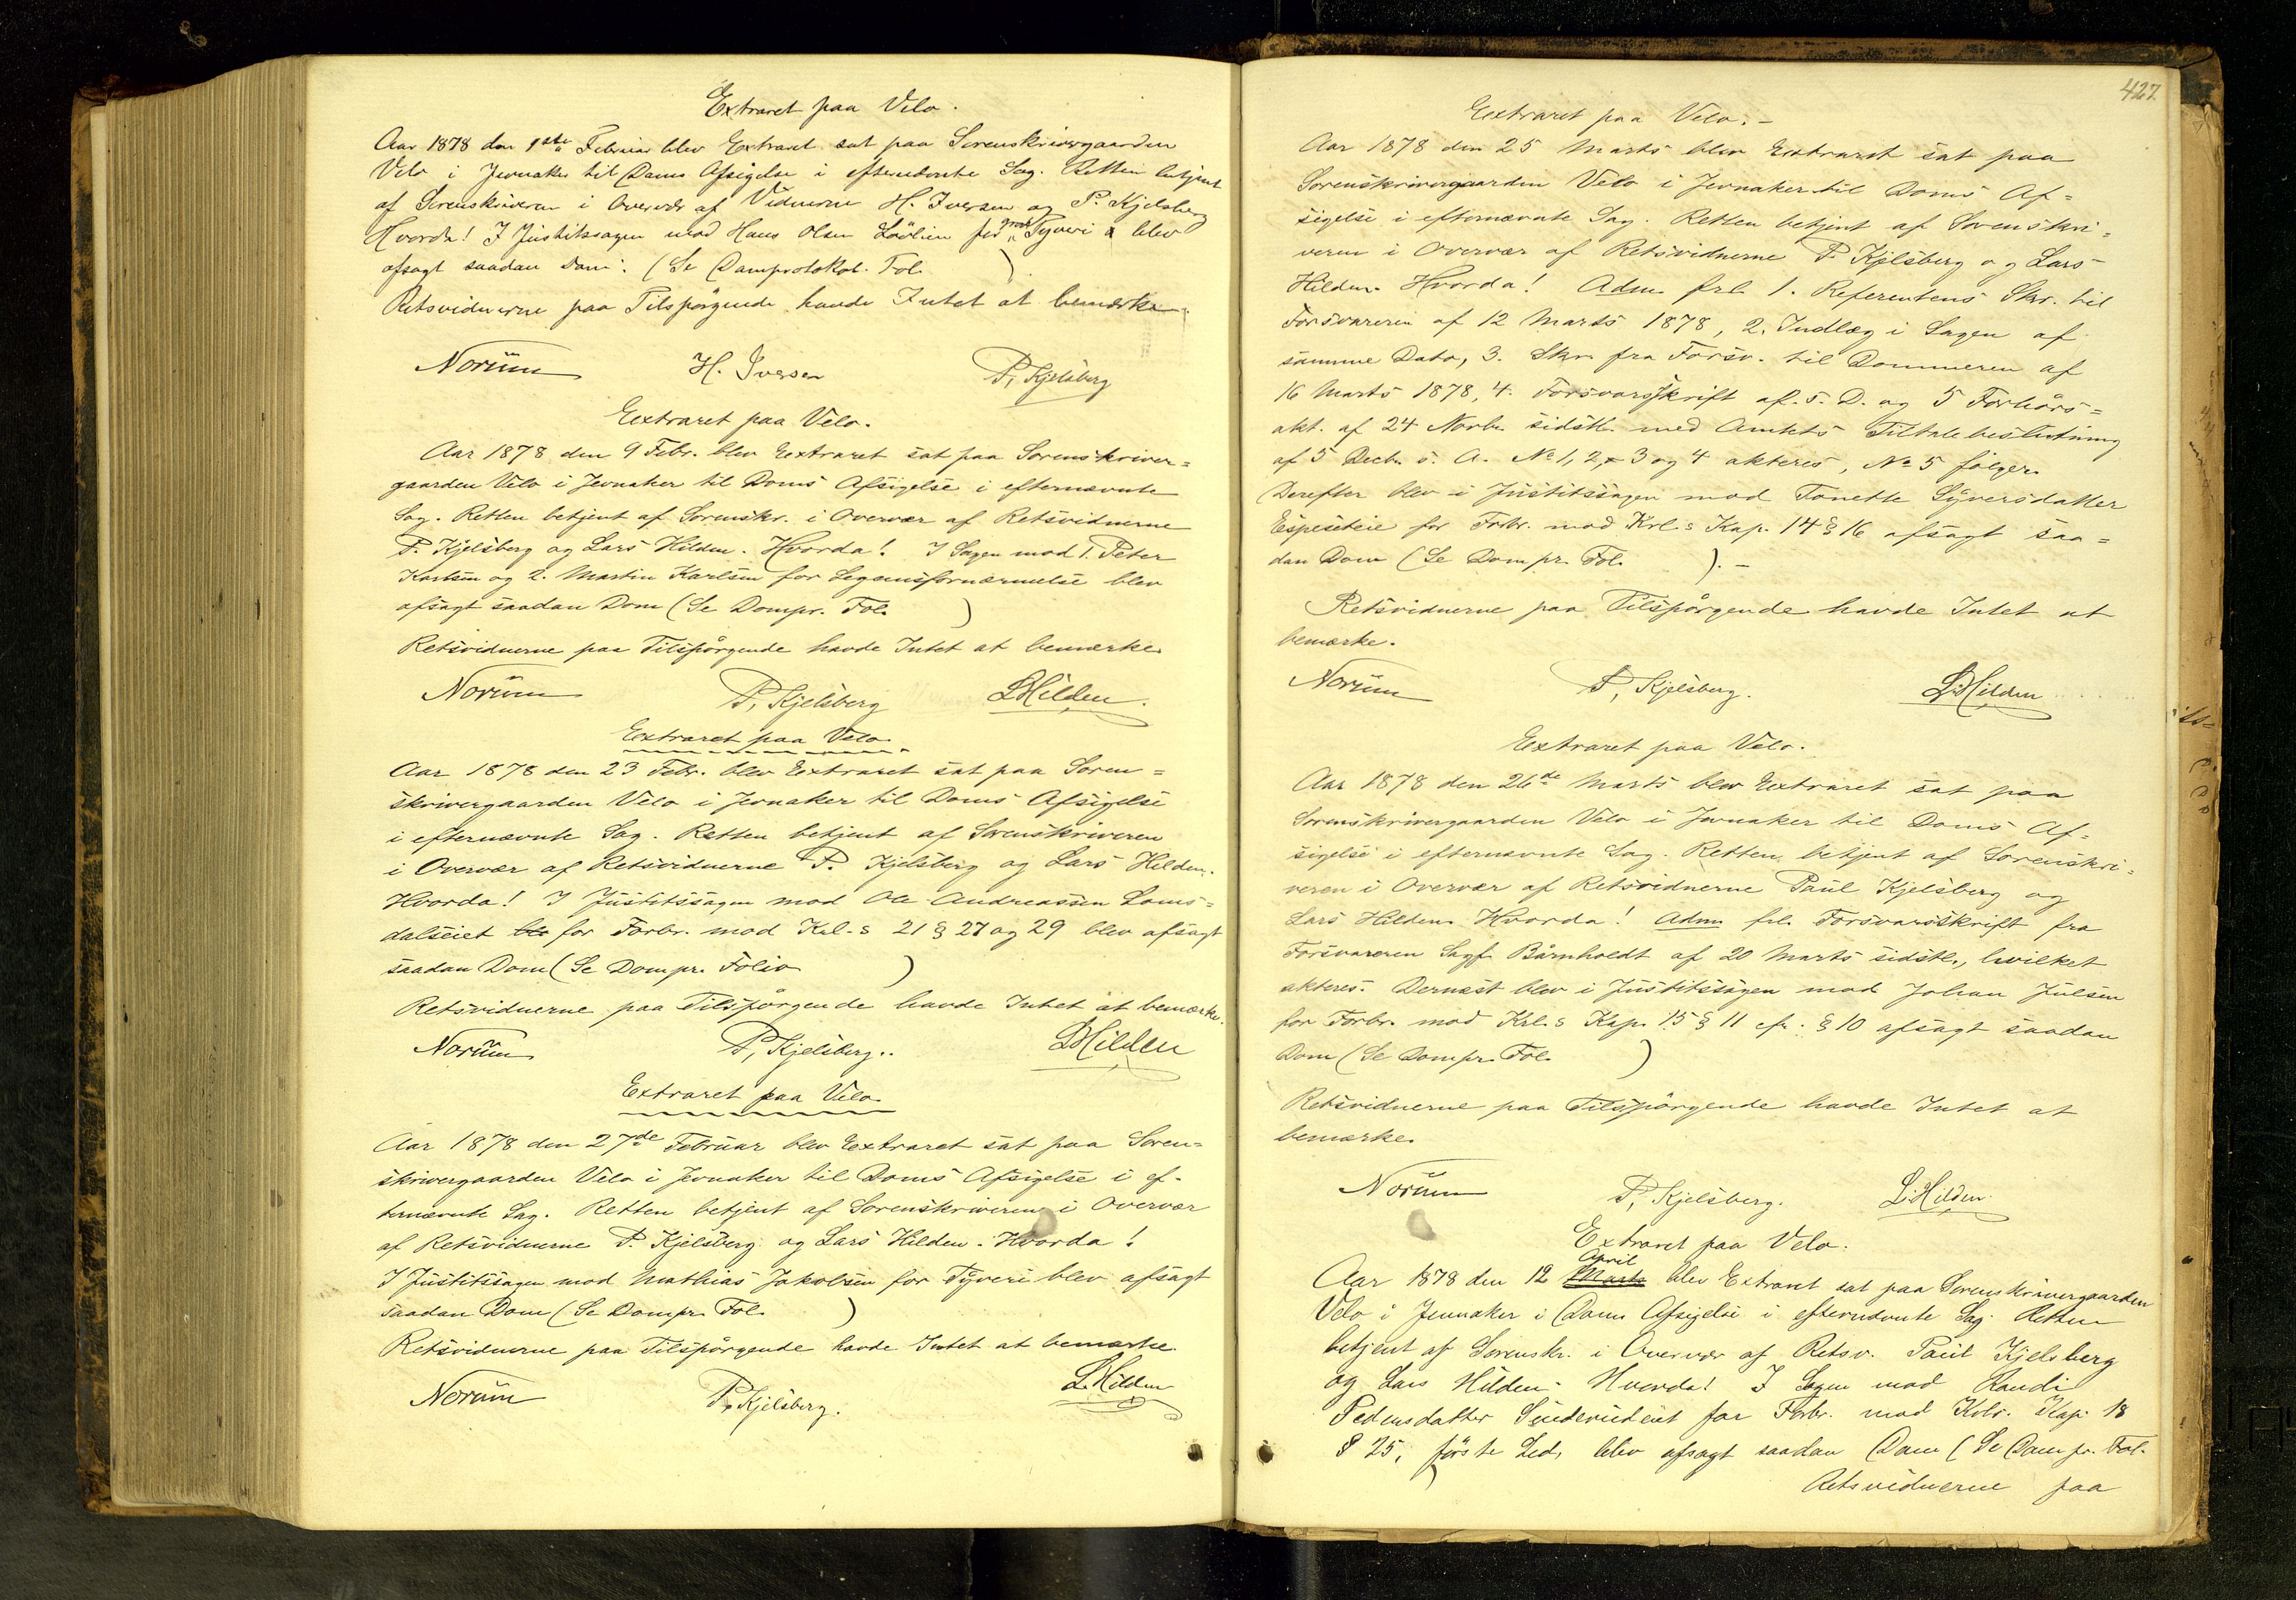 Extraret paa Velo.
Aar 1878 den 1ste Februar blev Extraret sat paa Sorenskrivergaarden
Velo i Jevnaker til Doms Afsigelse i efternævnte Sag. Retten betjent
af Sorenskriveren i Overvær af Vidnerne H. Iversen og P. Kjelsberg
Hvorda! I Justitssagen mod Hans Olsen for grov Tyveri blev
afsagt saadan Dom: (Se Domprotokol. Fol. )
Retsvidnerne paa Tilspørgende havde Intet at bemærke.
Norum H. Iversen P. Kjelsberg
Extraret paa Velo.
Aar 1878 den 9 Febr. blev Extraret sat paa Sorenskriver=
gaarden Velo i Jevnaker til Doms Afsigelse i efternævnte
Sag. Retten betjent af Sorenskr. i Overvær af Retsvidnerne
P. Kjelsberg og Lars Hilden. Hvorda! I Sagen mod 1. Peter
Karlsen og 2. Martin Karlsen for Legemsfornærmelse blev
afsagt saadan Dom (Se Dompr. Fol. )
Retsvidnerne paa Tilspørgende havde Intet at bemærke.
Norum P. Kjelsberg L Hilden.
Extraret paa Velo.
Aar 1878 den 23 Febr. blev Extraret sat paa Soren=
skrivergaarden Velo i Jevnaker til Doms Afsigelse
i efternævnte Sag. Retten betjent af Sorenskriveren
i Overvær af Retsvidnerne P. Kjelsberg og Lars Hilden.
Hvorda! I Justitssagen mod Ole Andreassen Loms=
dalseiet blev for Forbr. mod Krl.s 21 § 27 og 29 blev afsagt
saadan Dom (Se Dompr. Folio )
Retsvidnerne paa Tilspørgende havde Intet at bemærke.
Norum P. Kjelsberg. L Hilden
Extraret paa Velo.
Aar 1878 den 27de Februar blev Extraret sat paa Soren=
skrivergaarden Velo i Jevnaker til Doms Afsigelse i ef-
ternævnte Sag. Retten betjent af Sorenskriveren i Overvær
af Retsvidnerne P. Kjelsberg og Lars Hilden. Hvorda!
I Justitssagen mod Mathias Jakobsen for Tyveri blev afsagt
saadan Dom (Se Dompr. Fol. )
Retsvidnerne paa Tilspørgende havde Intet at bemærke.
Norum P. Kjelsberg. L. Hilden
427
Extraret paa Velo.-
Aar 1878 den 25 Marts blev Extraret sat paa
Sorenskrivergaarden Velo i Jevnaker til Doms Af=
sigelse i efternævnte Sag. Retten betjent af Sorenskri=
veren i Overvær af Retsvidnerne P. Kjelsberg og Lars
Hilden. Hvorda! Adm. frl. 1. Referentens Skr. til
Forsvareren af 12 Marts 1878, 2. Indlæg i Sagen af
samme Dato, 3. Skr. fra Forsv. til Dommeren af
16 Marts 1878, 4. Forsvarsskrift af s. D. og 5 Forhørs=
akt. af 24 Novbr. sidstl. med Amtets Tiltalebeslutning
af 5 Decbr. s. A. No 1, 2, 3 og 4 akteres, No 5 følger.
Derefter blev i Justitssagen mod Tonette Syversdatter
Espeseteie for Forbr. mod Krl.s Kap. 14 § 16 afsagt saa=
dan Dom (Se Dompr. Fol. ).-
Retsvidnerne paa Tilspørgende havde Intet at
bemærke.
Norum P. Kjelsberg. L. Hilden
Extraret paa Velo.
Aar 1878 den 26de Marts blev Extraret sat paa
Sorenskrivergaarden Velo i Jevnaker til Doms Af=
sigelse i efternævnte Sag. Retten betjent af Sorenskri=
veren i Overvær af Retsvidnerne Paul Kjelsberg og
Lars Hilden. Hvorda! Adm. frl. Forsvarsskrift fra
Forsvareren Sagf. Bårnholdt af 20 Marts sidstl., hvilket
akteres. Dernæst blev i Justitssagen mod Johan Julsen
for Forbr. mod Krl.s Kap. 15 § 11 cfr. § 10 afsagt saadan
Dom (Se Dompr. Fol. )
Retsvidnerne paa Tilspørgende havde Intet at
bemærke.
Norum P. Kjelsberg. L. Hilden.
Extraret paa Velo.
April
Aar 1878 den 12 Marts blev Extraret sat paa Sorenskrivergaarden
Velo i Jevnaker i Doms Afsigelse i efternævnte Sag. Retten
betjent af Sorenskr. i Overvær af Retsv. Paul Kjelsberg
og Lars Hilden. Hvorda! I Sagen mod Randi
Pedersdatter for Forbr. mod Krlv. Kap. 18
§ 25, første Led, blev afsagt saadan Dom (Se Dompr. Fol.
)
Retsvidnerne paa